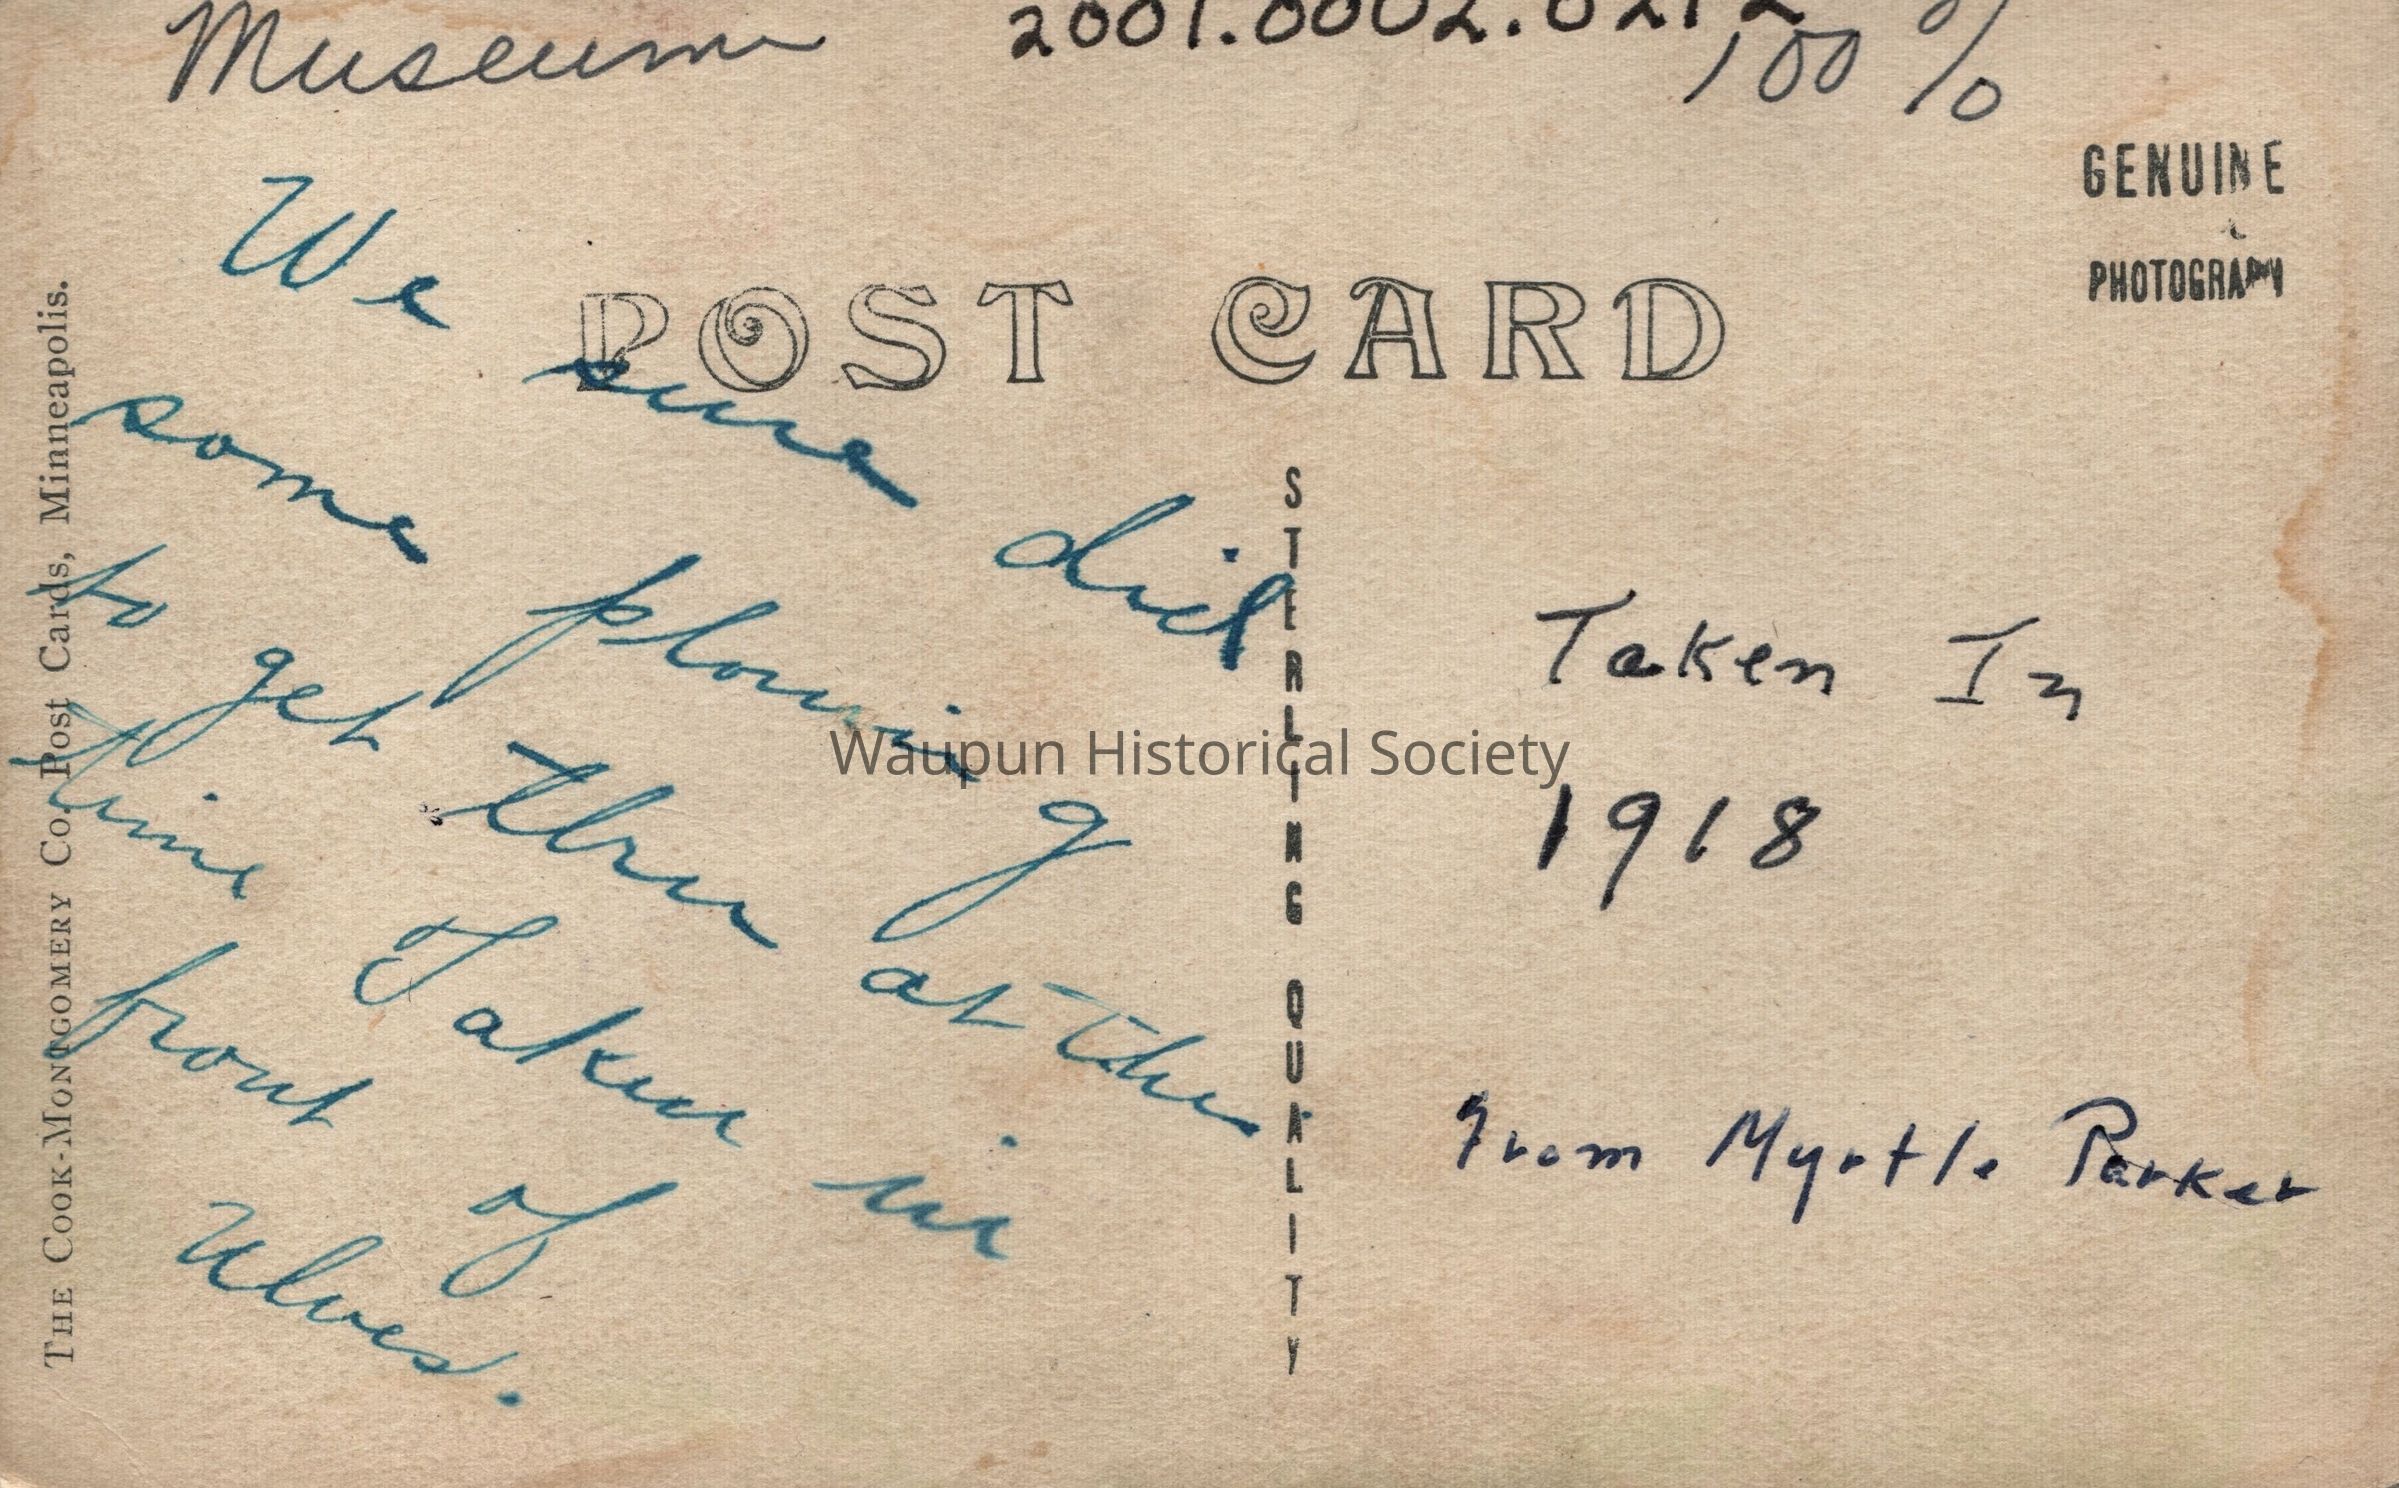 Museum
2001.0002.0212
100 %
GENUINE
PHOTOGRAPH
POST CARD
We sure did
some plowing
to get thru at the
time Taken in
front of
Ulves.
THE COOK-MONTGOMERY CO. POST CARDS, MINNEAPOLIS.
STERLING QUALITY
Taken In
1918
From Myrtle Parker
Waupun Historical Society